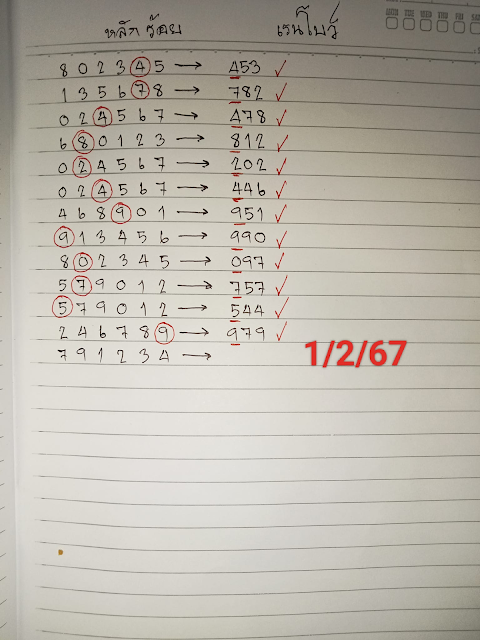 หลักร้อย เรนโบว์
802345 → 453 ✓
135678 → 782 ✓
024567 → 478 ✓
680123 → 812 ✓
024567 → 202 ✓
024567 → 446 ✓
468901 → 951 ✓
913456 → 990 ✓
802345 → 097 ✓
579012 → 757 ✓
579012 → 544 ✓
246789 → 979 ✓
791234 →
1/2/67